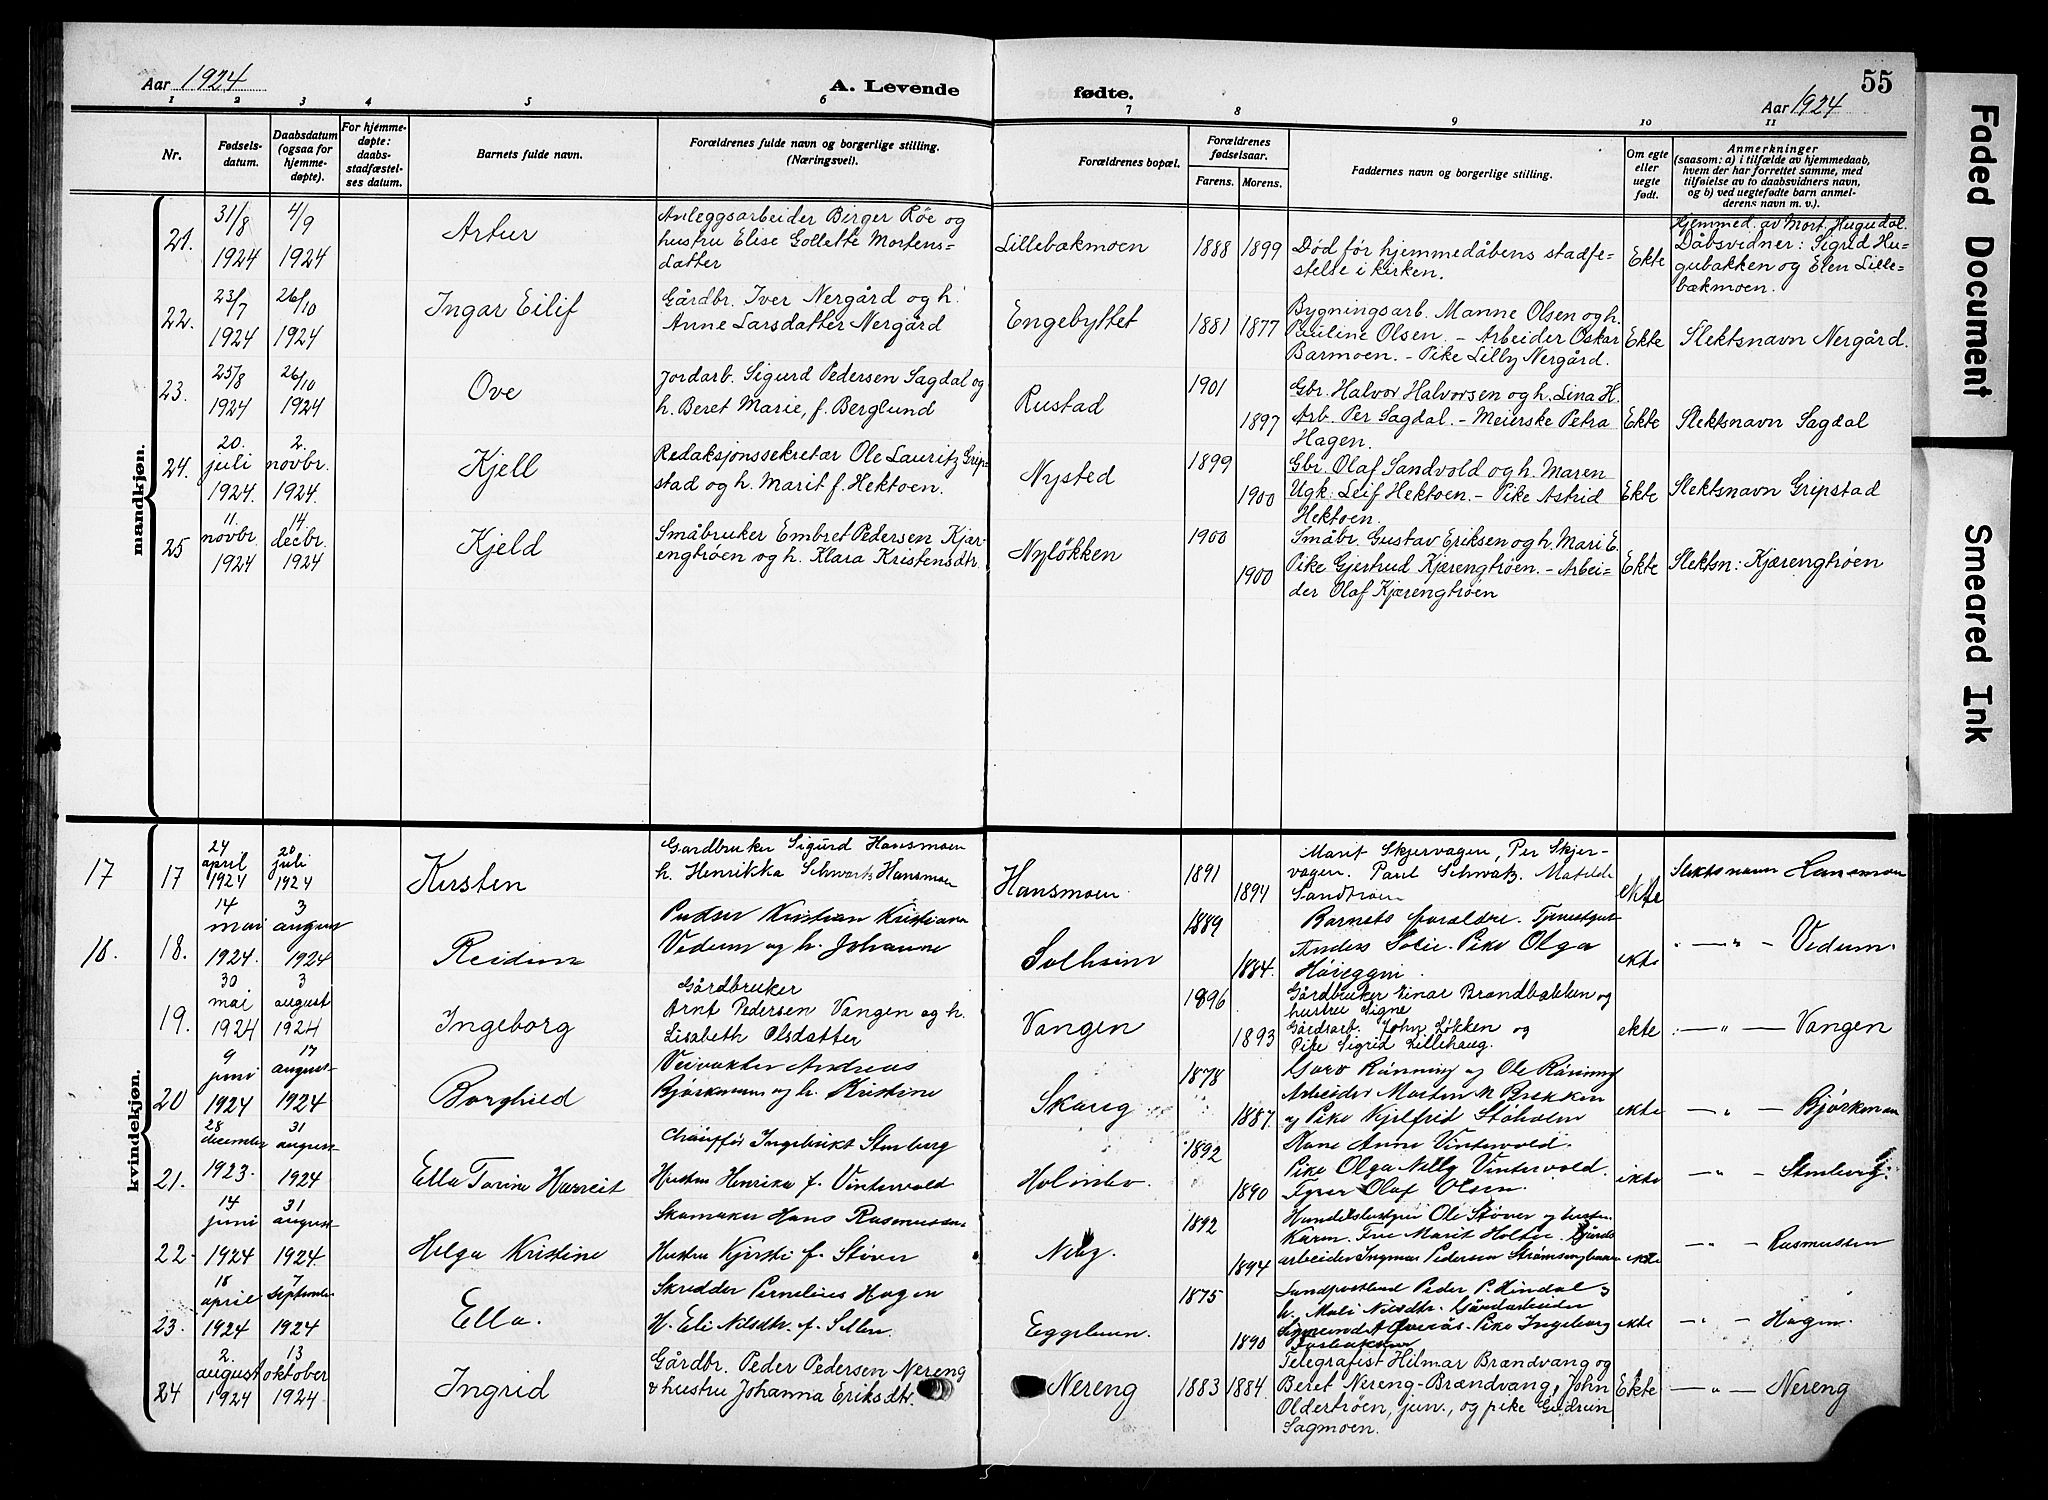 Aar 1924
A. Levende
fødte.
55
Aar 1924
1 2 3 4 5 6 7 8 9 10 11
Nr.
Fødsels-
datum.
Daabsdatum
(ogsaa for
hjemme-
døpte).
For hjemme-
døpte:
daabs-
stadfæstel-
ses datum.
Barnets fulde navn.
Forældrenes fulde navn og borgerlige stilling.
(Næringsvei).
Forældrenes bopæl.
Forældrenes
fødselsaar.
Farens. Morens.
Faddernes navn og borgerlige stilling.
Om egte
eller
uegte
født.
Anmerkninger
(saasom: a) i tilfælde av hjemmedaab,
hvem der har forrettet samme, med
tilføielse av to daabsvidners navn,
og b) ved uegtefødte barn anmel-
derens navn m. v.).
mandkjøn.
21.
31/8
1924
4/9
1924
Artur
Anleggsarbeider Birger Röe og
hustru Elise Gollette Mortens-
datter
Lillebakmoen
1888 1899
Död før hjemmedåbens stadfe-
stelse i kirken.
Ekte
Hjemmed. av Mort. Hugudal.
Dåbsvidner: Sigrid Hu-
gubakken og Elen Lille-
bakmoen.
22.
23/7
1924
26/10
1924
Ingar Eilif
Gårdbr. Iver Nergård og h.
Anne Larsdatter Nergård
Engebyttet
1881 1877
Bygningsarb. Manne Olsen og h.
Pauline Olsen. - Arbeider Oskar
Barmoen. - Pike Lilly Nergård.
Ekte
Slektsnavn Nergård.
23.
25/8
1924
26/10
1924
Ove
Jordarb. Sigurd Pedersen Sagdal og
h. Beret Marie, f. Berglund
Rustad
1901
1897
Gbr. Halvor Halvorsen og h. Lina H.
Arb. Per Sagdal. - Meierske Petra
Hagen.
Ekte
Slektsnavn Sagdal
24.
20.
juli
1924.
2.
novbr.
1924.
Kjell
Redaksjonssekretær Ole Lauritz Grip-
stad og h. Marit f. Hektoen.
Nysted
1899
1900
Gbr. Olaf Sandvold og h. Maren
Ugk. Leif Hektoen. - Pike Astrid
Hektoen.
Ekte
Slektsnavn Gripstad
25
11.
novbr.
1924
14.
decbr.
1924
Kjeld
Småbruker Embret Pedersen Kjær-
engtröen og h. Klara Kristensdtr.
Nyløkken
1900
1900
Småbr. Gustav Eriksen og h. Mari E.
Pike Gjertrud Kjærengtröen. - Arbei-
der Olaf Kjærengtröen
Ekte
Slektsn: Kjærengtröen
kvindekjøn.
17
17
24
april
1924
20
juli
1924
Kirsten
Gardbruker Sigurd Hansmoen
h. Henrikka Schwartz Hansmoen
Hansmoen
1891
1894
Marit Skjervagen, Per Skjer-
vagen. Paul Schwatz. Matilde
Sandtrøen
ekte
Slektsnavn Hansmoen
18.
18.
14
mai
1924.
3
august
1924
Reidun
Kristian Kristiansen
Vedum og h. Johanne
Solheim
1889
1884.
Barnets foraldre. Tjenestgut
Anders Solie. Pike Olga
ekte
" — " — Vedum.
19.
30
mai
1924
3
august
1924
Ingeborg
Gårdbruker
Arnt Pedersen Vangen og h.
Lisabeth Olsdatter
Vangen
1896
1893
Gårdbruker Einar Brandbakken og
hustru Signe
Gårdsarb. John Løkken og
Pike Sigrid Lillehaug.
ekte
— " — Vangen
20
9
juni
1924
17
august
1924
Borghild
Veivokter Andreas
Bjørkman og h. Kristine
Skaug
1878
1887.
Rönning og Ole Rönning
Arbeider Morten M Brekken
og Pike Kjelfrid Støholen
ekte
— " — Bjørkman
21.
28
december
1923.
31
august
1924
Ella Torine Harreit
Chauffør Ingebrikt Stenberg
Hustru Henrika f. Vintervold
Holmbo.
1892
1890
Anne Vintervold.
Pike Olga Nelly Vintervold.
Fyrer Olaf Olsen.
ekte
— " — Stenberg.
22
14
juni
1924
31
august
1924
Helga Kristine
Skomaker Hans Rasmussen
Hustru Kjersti f. Støver
Neby
1892
1894
Handelsbestyrer Ole Støver og hustru
Karen. Fru Marit Holter. Gårds
arbeider Ingmar Pedersen
ekte
— " — Rasmussen
23.
18
april
1924
7
september
1924
Ella.
Skredder Pernelius Hagen
H. Eli Nilsdtr. f.
Eggeluen.
1875
1890
Landpostbud Peder P. Hindal og
h. Mali Nilsdtr. Gårdarbeider
Pike Ingeborg
ekte
— " — Hagen.
24
2.
august
1924
13
oktober
1924.
Ingrid
Gårdbr. Peder Pedersen Nereng
& hustru Johanna Eriksdtr.
Nereng
1883 1884.
Telegrafist Hilmar Brændvang og
Beret Nereng-Brændvang, John
Oldertröen, jun., og pike Gudrun
Sagmoen.
Ekte
— " — Nereng
Faded Document
Smeared Ink